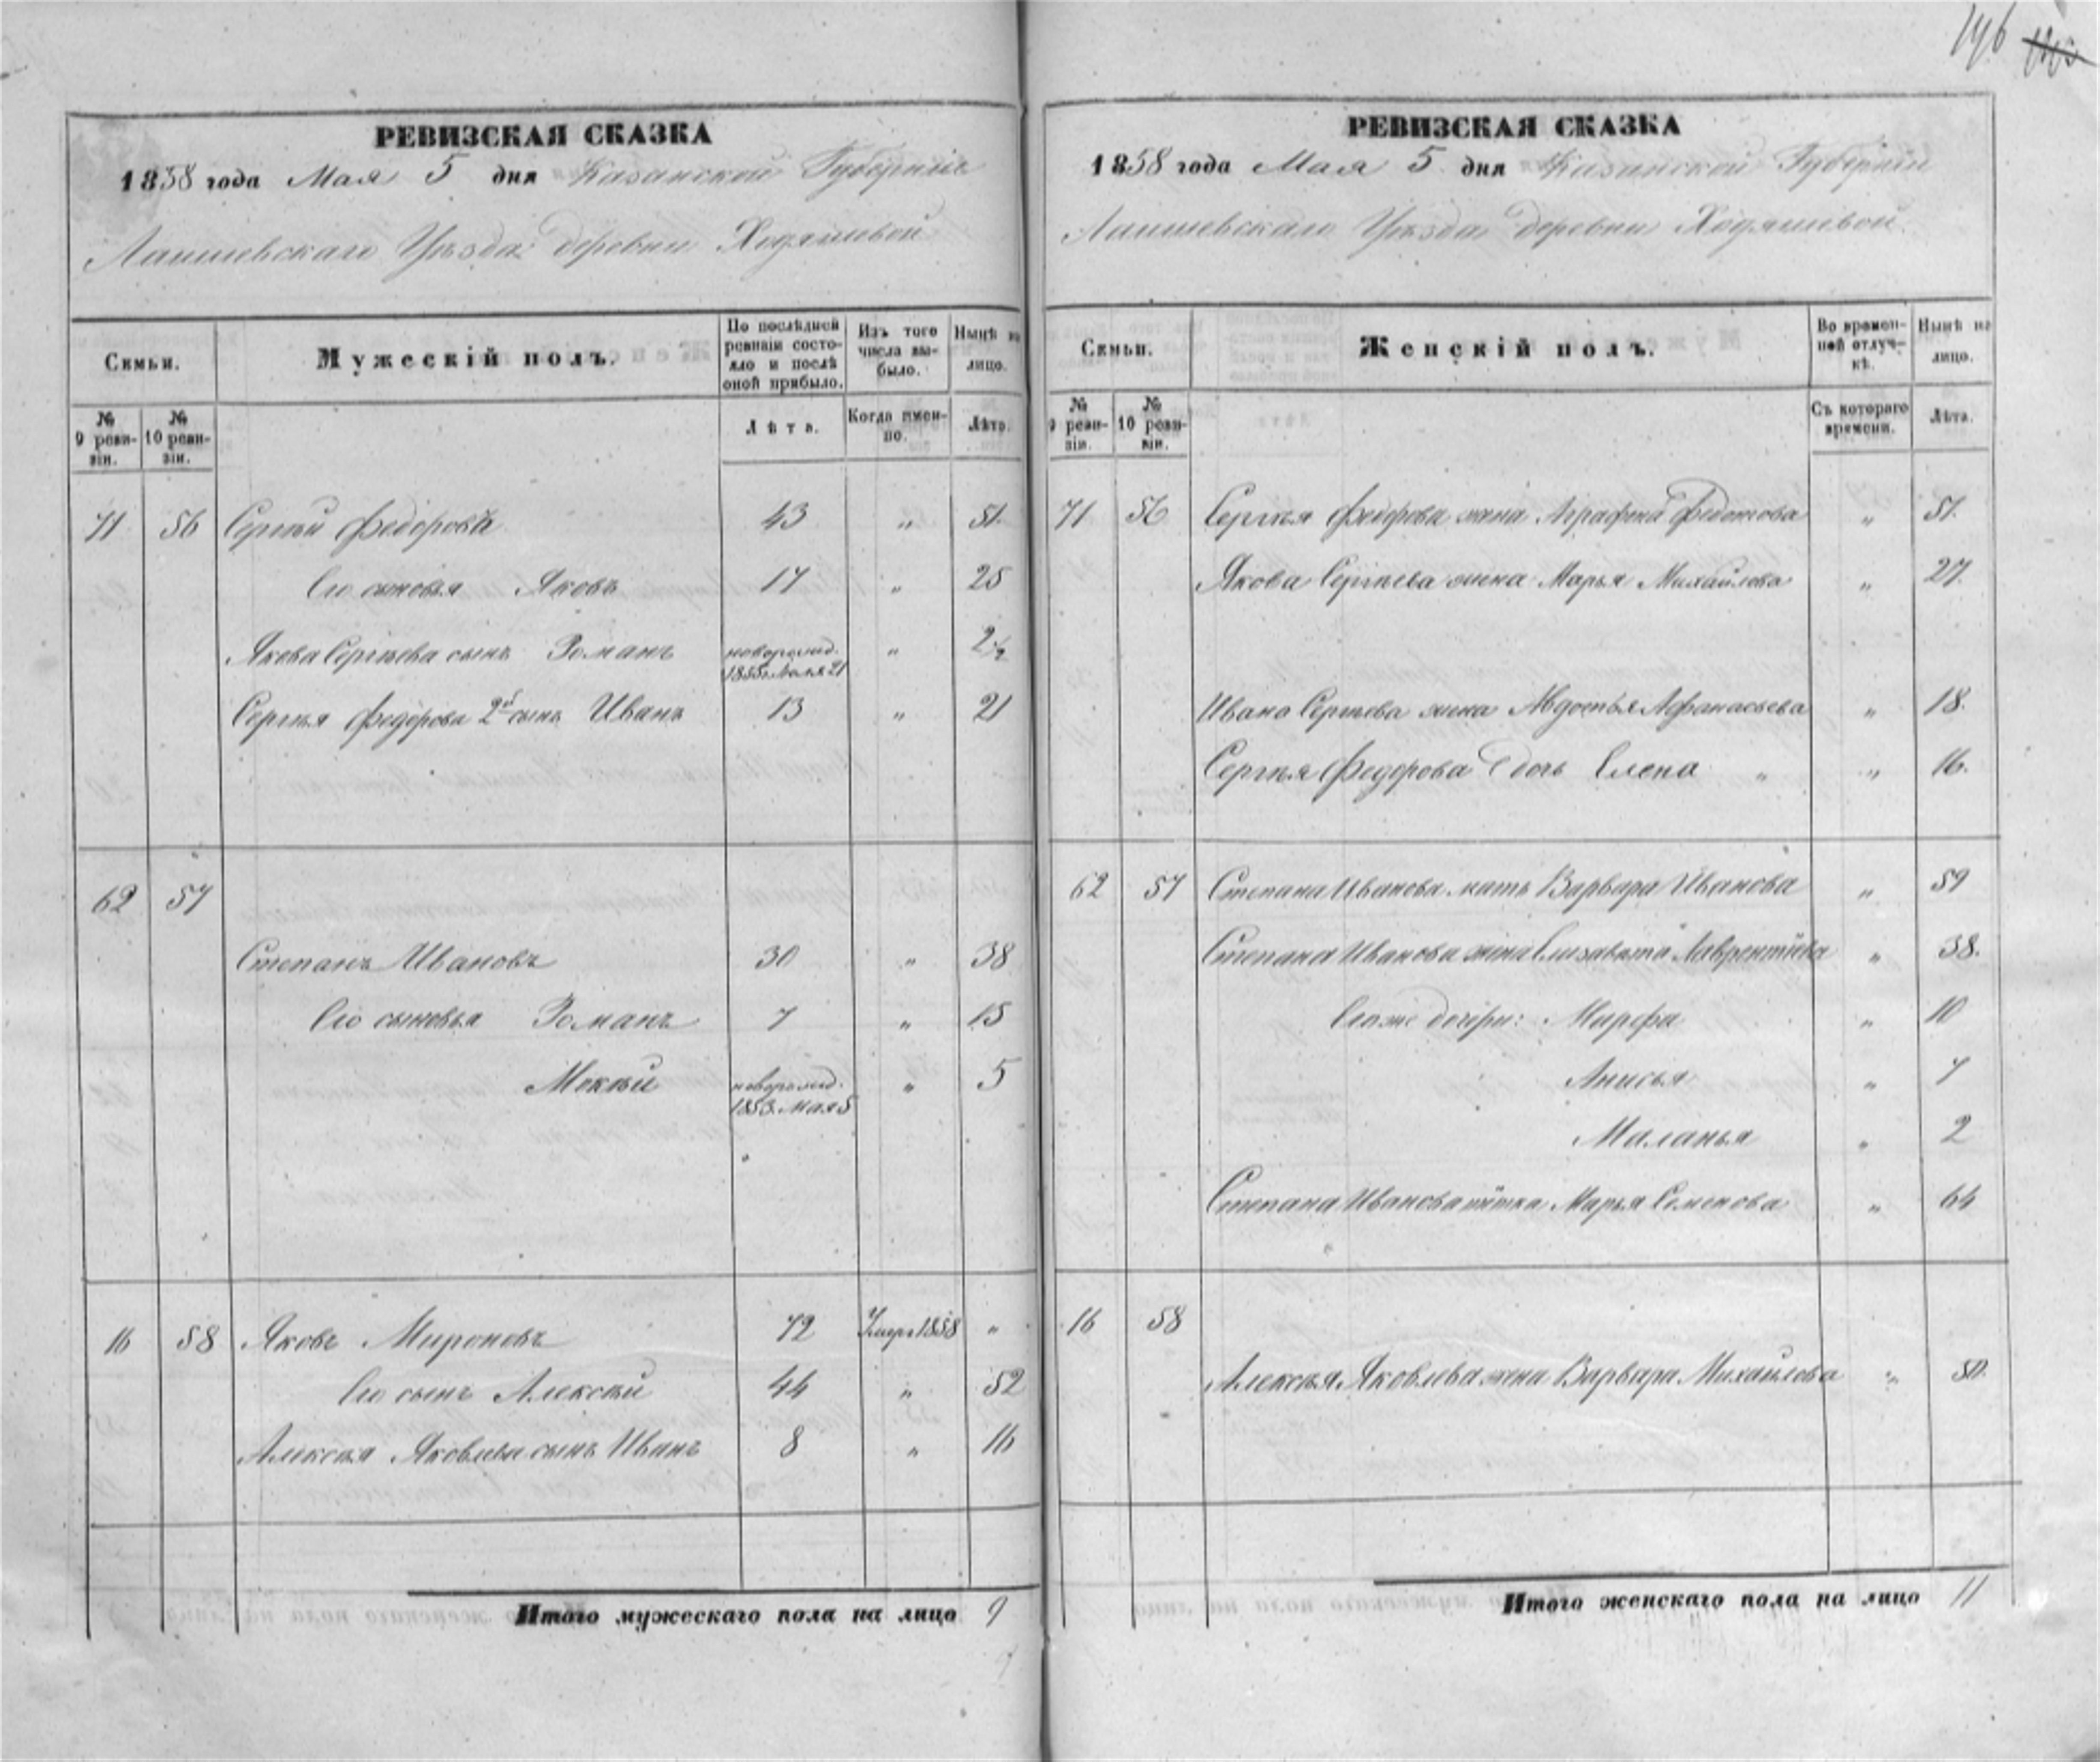 146
РЕВИЗСКАЯ СКАЗКА
1858 года Мая 5 дня Казанской Губерніи
Лаишевскаго Уѣзда деревни Ходяшевой
Семьи.
Мужескій полъ.
По послѣдней ревизіи состояло и послѣ оной прибыло.
Изъ того числа выбыло.
Нынѣ на лицо.
№ 9 ревизіи.
№ 10 ревизіи.
Лѣта.
Когда именно.
Лѣта.
71 56 Сергѣй Федоровъ 43 „ 51
Его сыновья Яковъ 17 „ 25
Якова Сергѣева сынъ Романъ новорожд. 1855 21 „ 2½
Сергѣя Федорова 2й сынъ Иванъ 13 „ 21
62 57
Степанъ Ивановъ 30 „ 38
Его сыновья Романъ 7 „ 15
Мокѣй новорожд. 1853 Мая 5 „ 5
16 58 Яковъ Мироновъ 72 Умеръ 1858 „
Его сынъ Алексѣй 44 „ 52
Алексѣя Яковлева сынъ Иванъ 8 „ 16
Итого мужескаго пола на лицо 9
РЕВИЗСКАЯ СКАЗКА
1858 года Мая 5 дня Казанской Губерніи
Лаишевскаго Уѣзда деревни Ходяшевой
Семьи.
Женскій полъ.
Во временной отлучкѣ.
Нынѣ на лицо.
№ 9 ревизіи.
№ 10 ревизіи.
Съ котораго времени.
Лѣта.
71 56 Сергѣя Федорова жена Аграфена Федотова „ 51.
Якова Сергѣева жена Марья Михайлова „ 27.
Ивана Сергѣева жена Авдотья Афанасьева „ 18.
Сергѣя Федорова дочь Елена „ „ 16.
62 57 Степана Иванова мать Варвара Иванова „ 59
Степана Иванова жена Елизавета Лаврентьева „ 38.
Егоже дочери: Марфа „ 10
Анисья „ 7
Маланья „ 2
Степана Иванова тётка Марья Семенова „ 64
16 58
Алексѣя Яковлева жена Варвара Михайлова „ 50.
Итого женскаго пола на лицо 11